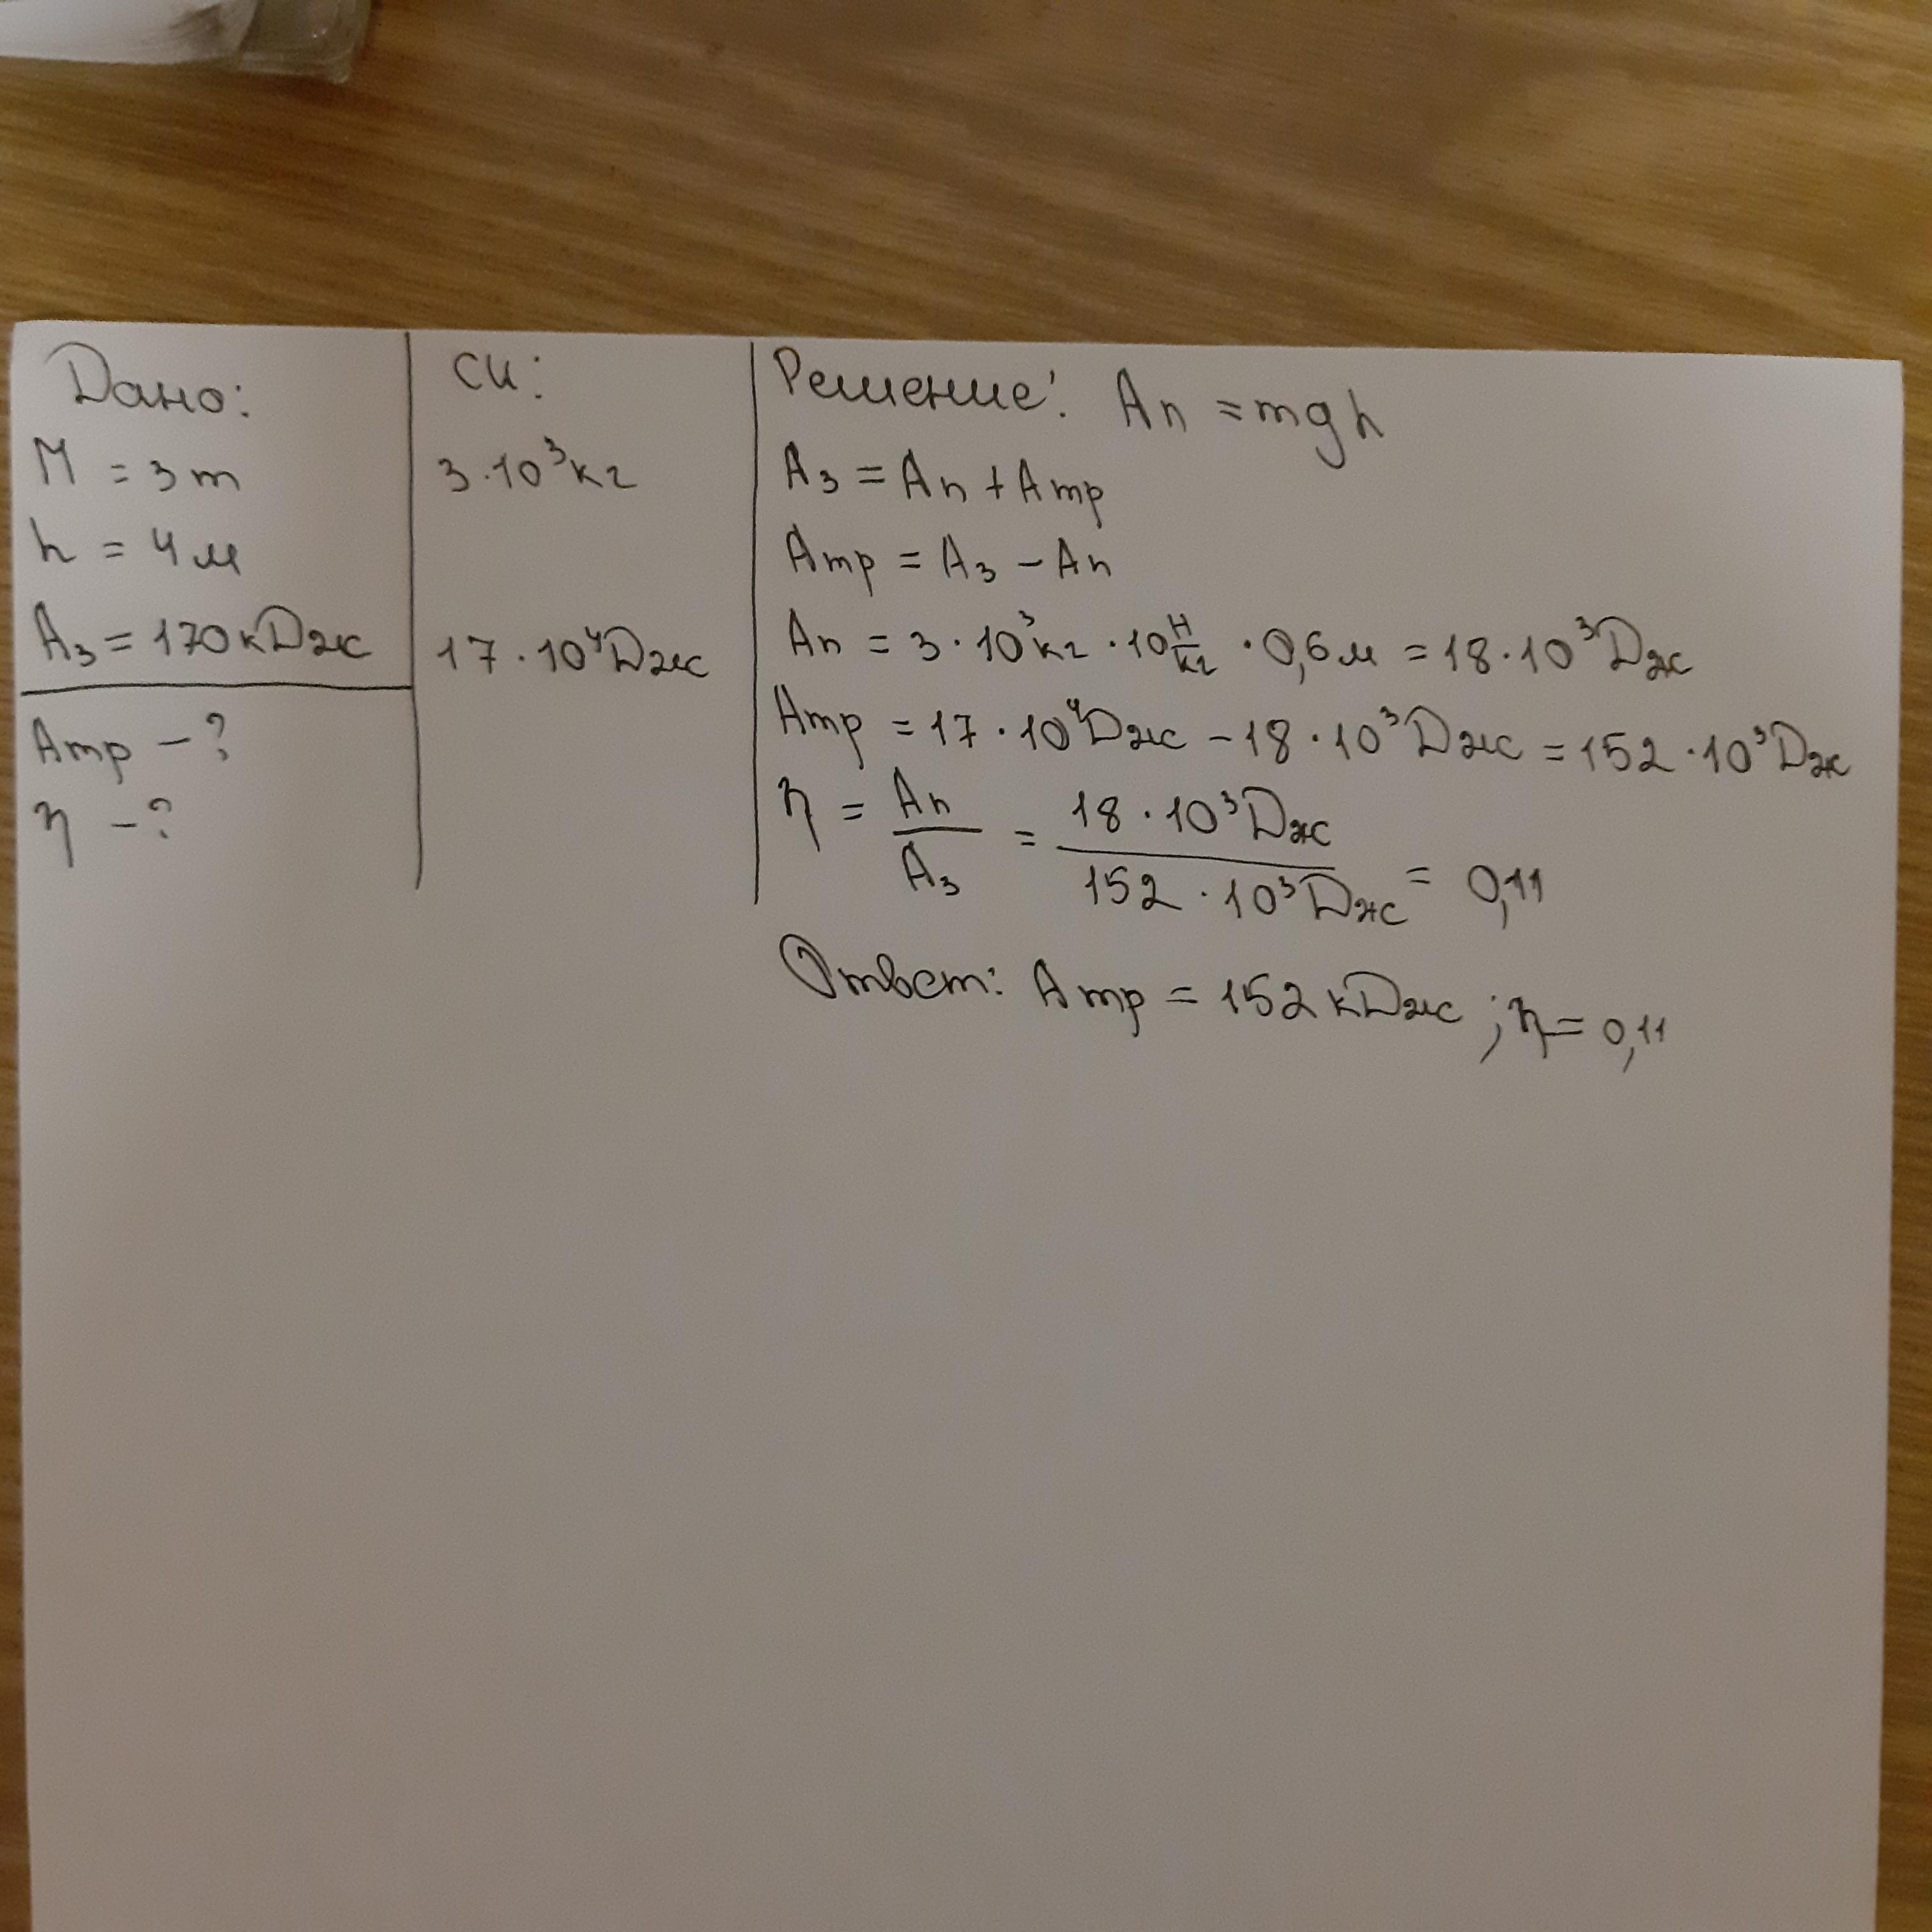 Дано:
M = 3т
h = 4м
Aз = 170кДж
Aтр – ?
η – ?
СИ:
3·10³кг
17·10⁴Дж
Решение: Aп = mgh
Aз = Aп + Aтр
Aтр = Aз – Aп
Aп = 3·10³кг·10Н/кг·0,6м = 18·10³Дж
Aтр = 17·10⁴Дж – 18·10³Дж = 152·10³Дж
η = Aп/Aз = 18·10³Дж/152·10³Дж = 0,11
Ответ: Aтр = 152кДж; η = 0,11